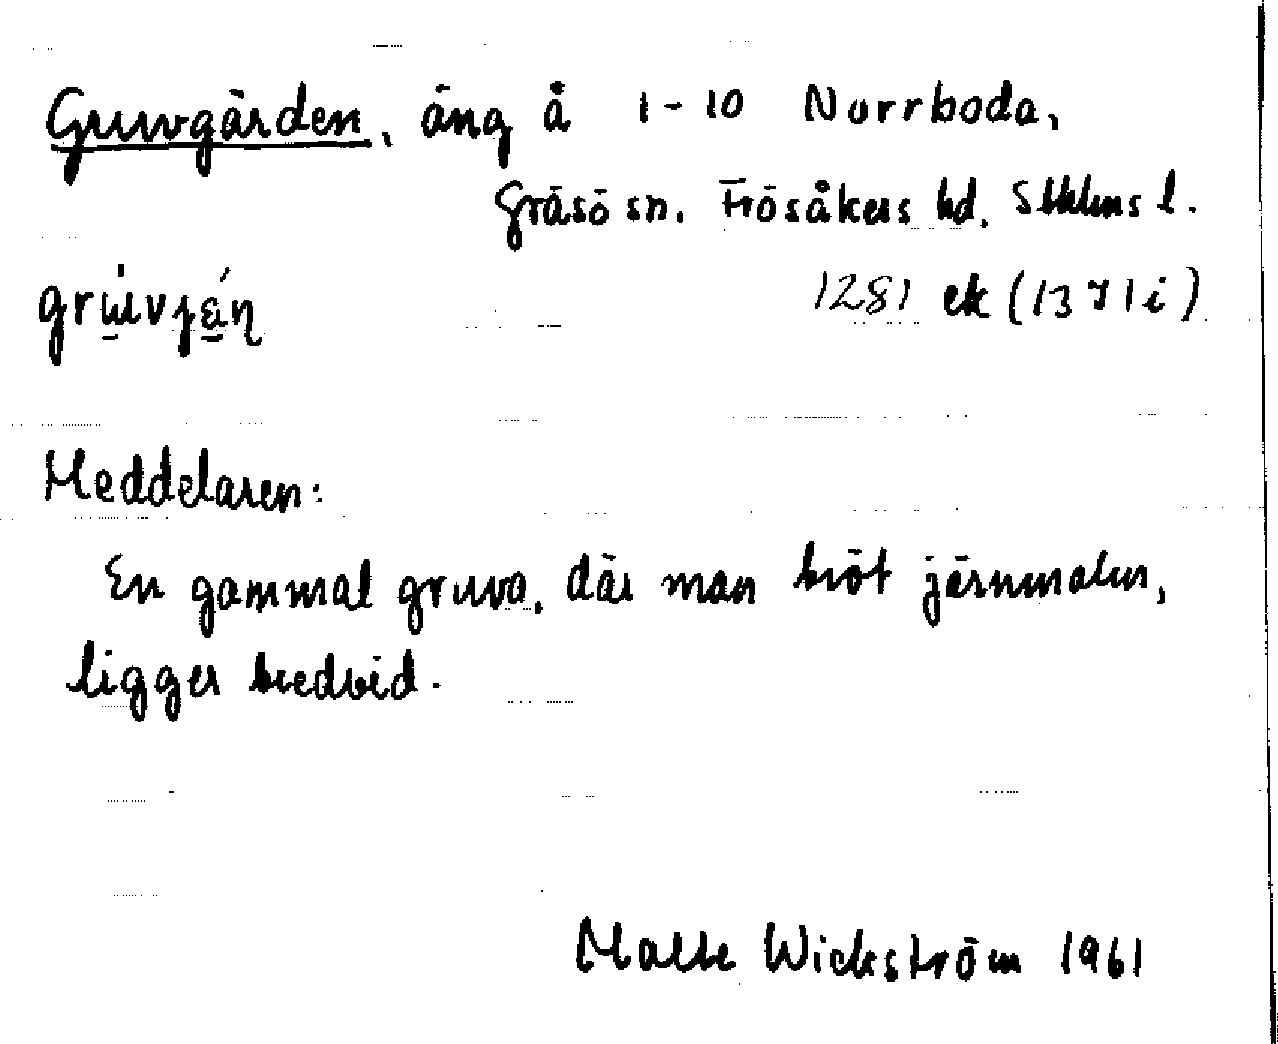 Gruvgärden, äng å 1-10 Norrboda,
Gräsö sn. Frösåkers hd. Sthlms l.
1281 ek (1371i)
Meddelaren:
En gammal gruva, där man bröt järnmalm,
ligger bredvid.
Malte Wickström 1961